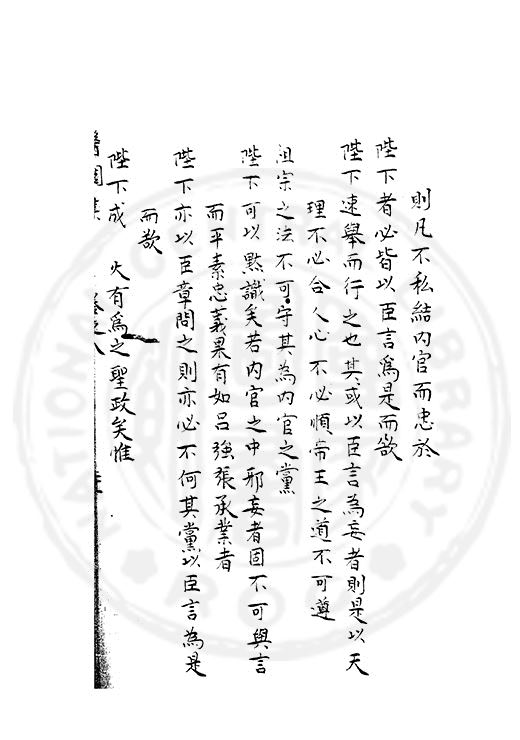 則凡不私結內官而忠於
陛下者必皆以臣言爲是而欲
陛下速舉而行之也其或以臣言為妄者則是以天
理不必合人心不必順帝王之道不可遵
祖宗之法不可守其為內官之黨
陛下可以黙識矣若內官之中邪妄者固不可與言
而平素忠義果有如呂強張承業者
陛下亦以臣章問之則亦必不何其黨以臣言為是
而欲
陛下成 大有爲之聖政矣惟
卷之八
NATIONAL CENTRAL LIBRARY